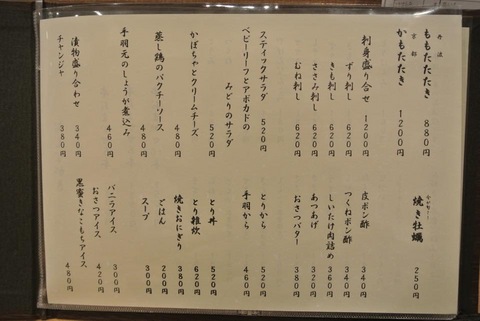 丹波
ももたたき 880円
京都
かもたたき 1200円
刺身盛り合せ 1200円
ずり刺し 620円
きも刺し 620円
ささみ刺し 620円
むね刺し 620円
スティックサラダ 520円
ベビーリーフとアボカドの
みどりのサラダ 520円
かぼちゃとクリームチーズ 480円
蒸し鶏のパクチーソース 480円
手羽元のしょうが煮込み 460円
漬物盛り合わせ 340円
チャンジャ 380円
焼き牡蠣 250円
皮ポン酢 340円
つくねポン酢 340円
しいたけ肉詰め 360円
あつあげ 320円
おさつバター 380円
とりから 520円
手羽から 460円
とり丼 520円
とり雑炊 620円
焼きおにぎり 380円
ごはん 200円
スープ 300円
バニラアイス 300円
おさつアイス 420円
黒蜜きなこもちアイス 480円